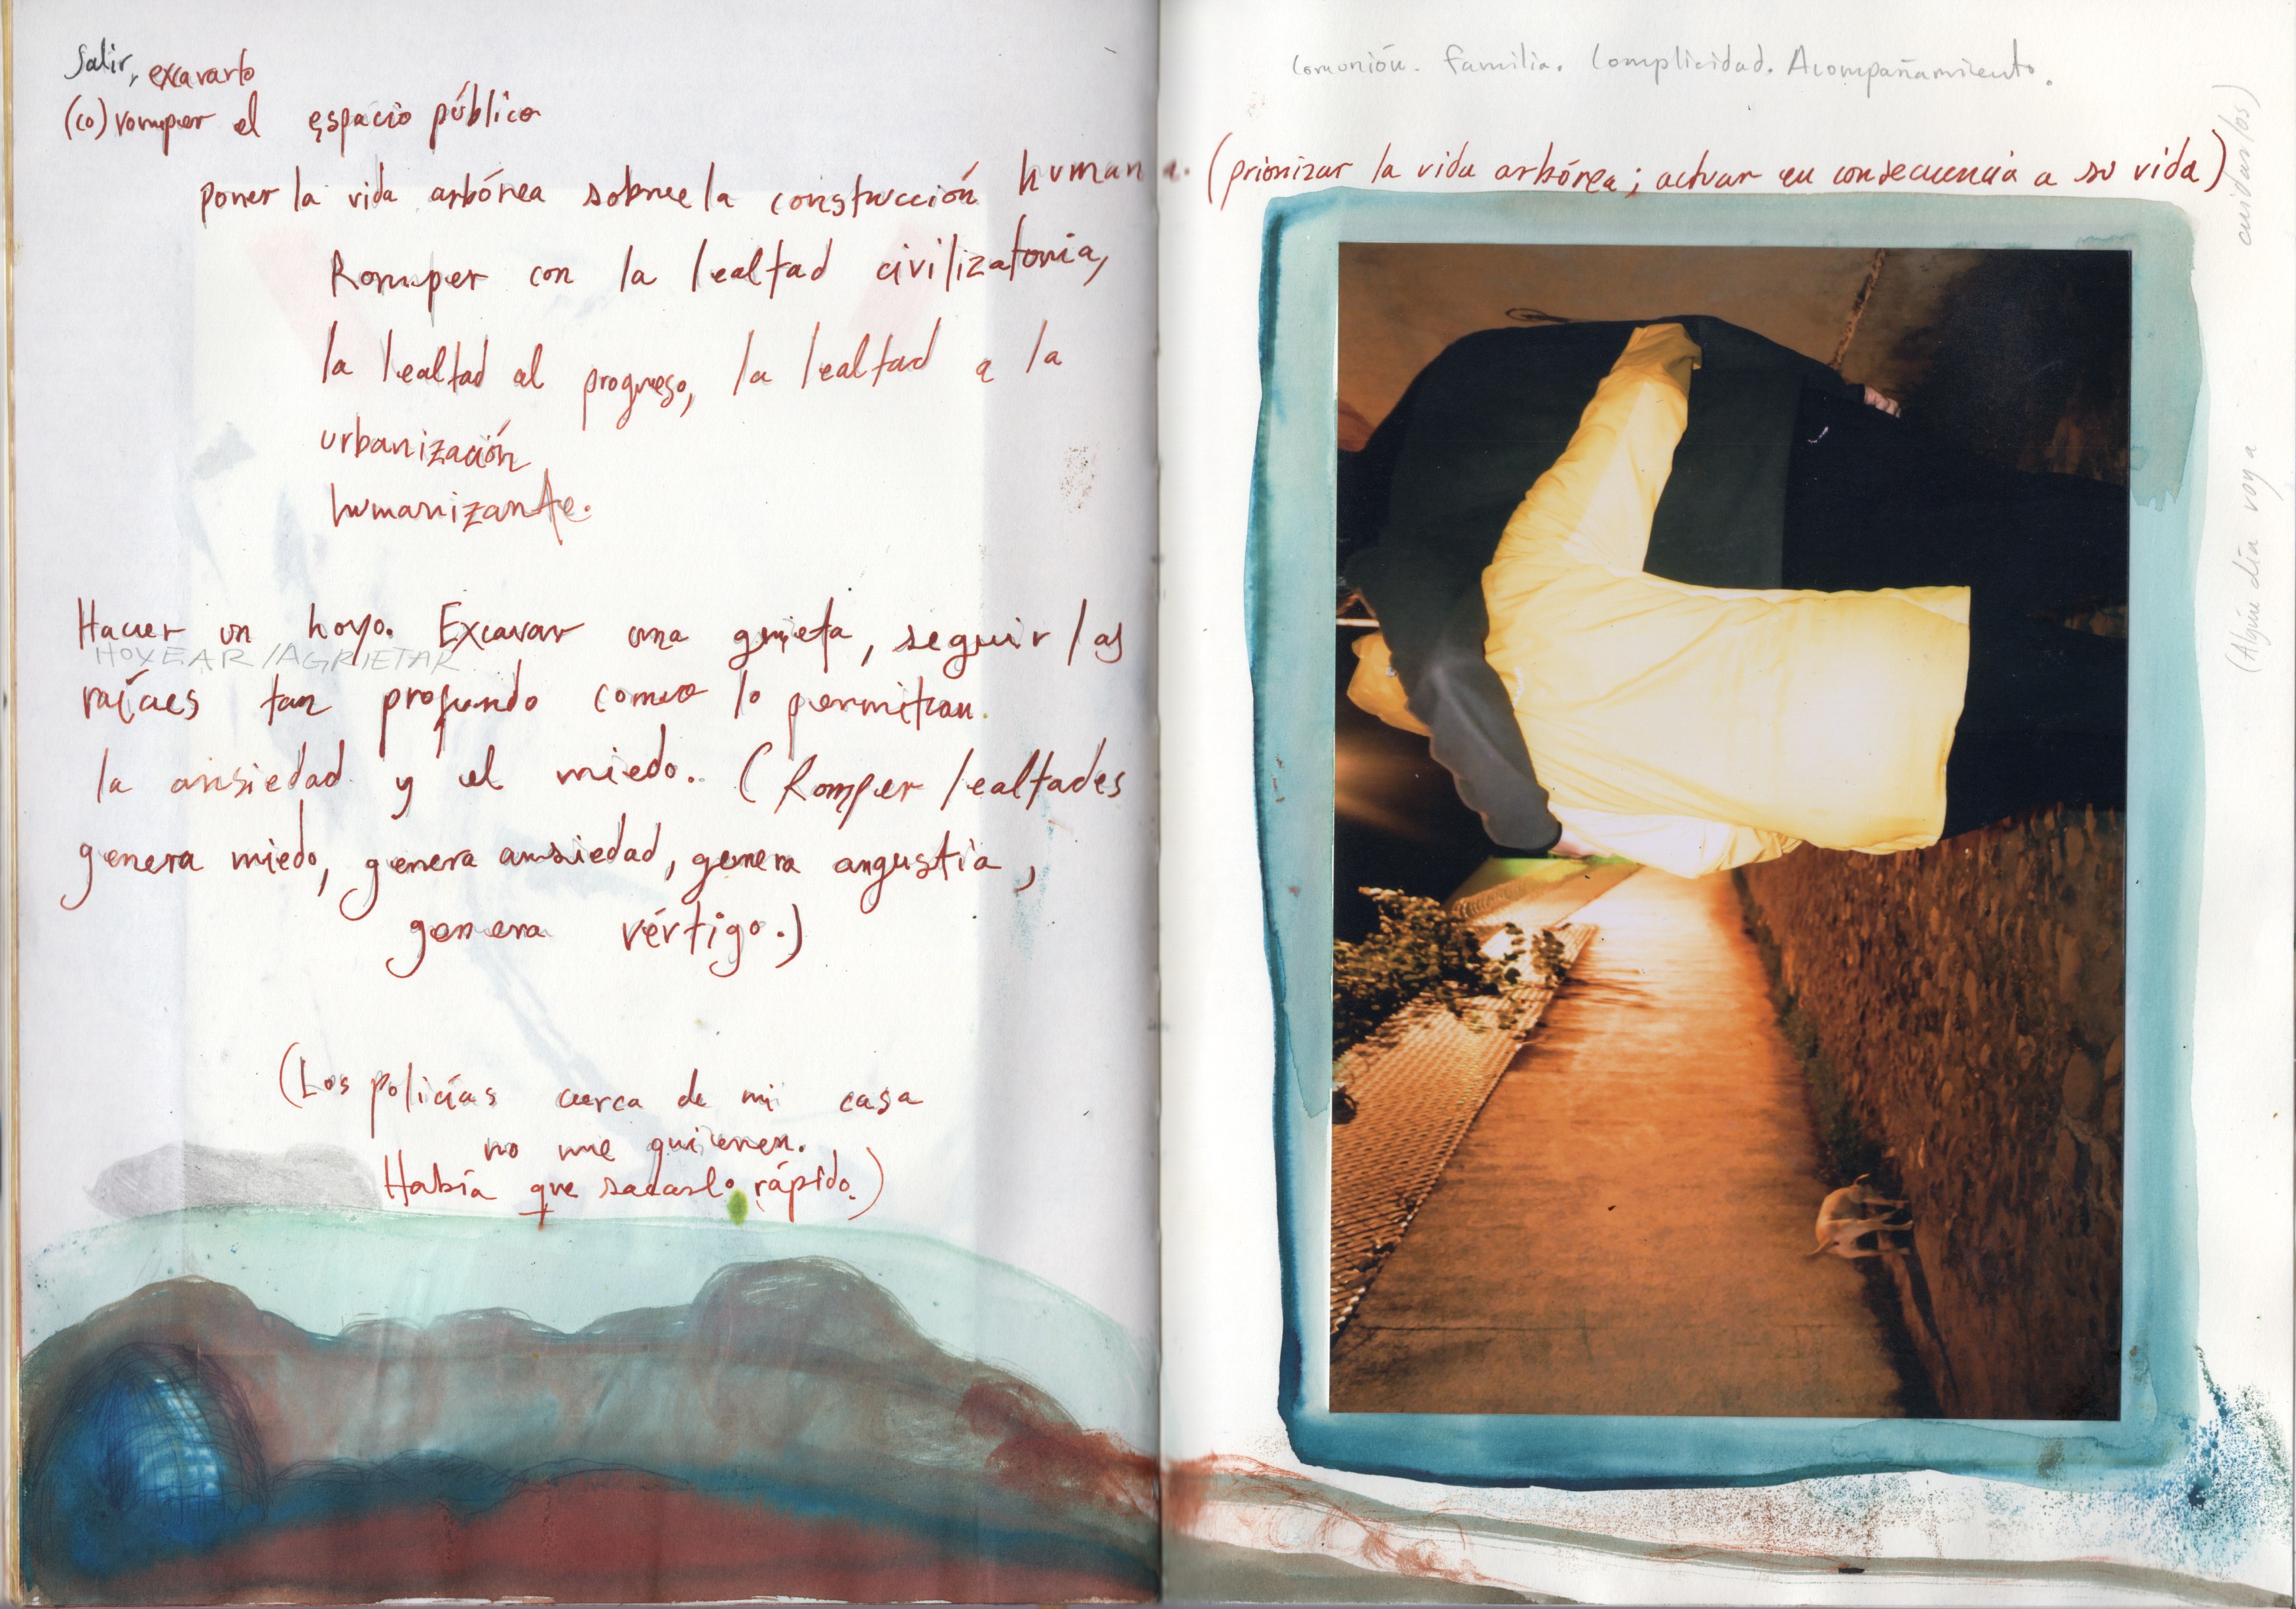 Salir, excavarlo
(co)romper el espacio público
poner la vida arbórea sobre la construcción humana. (priorizar la vida arbórea; actuar en consecuencia a su vida)
Romper con la lealtad civilizatoria,
la lealtad al progreso, la lealtad a la
urbanización
humanizante.
Hacer un hoyo. Excavar una grieta, seguir las
HOYEAR/AGRIETAR
raíces tan profundo como lo permitan
la ansiedad y el miedo. (Romper lealtades
genera miedo, genera ansiedad, genera angustia,
genera vértigo.)
(Los policías cerca de mi casa
no me quieren.
Había que sacarlo rápido.)
Comunión. Familia. Complicidad. Acompañamiento.
(Algún día voy a cuidar/los)